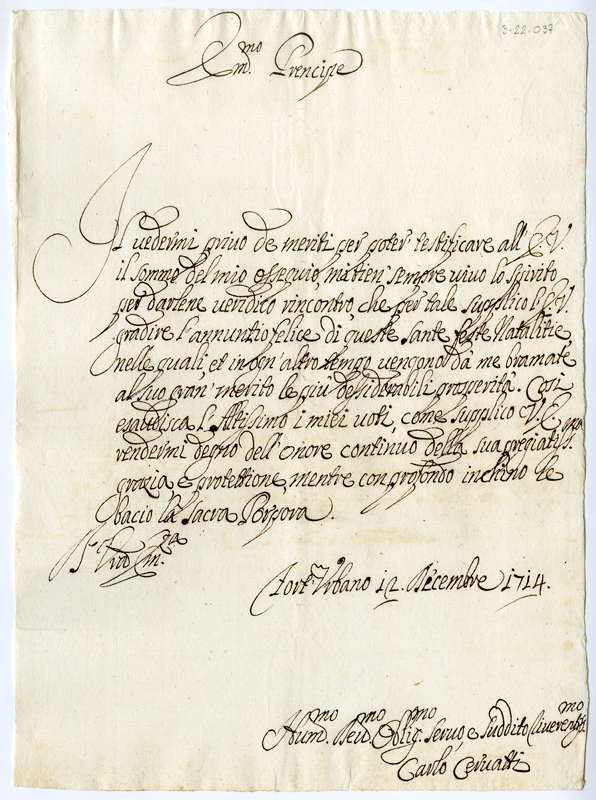 3-22-037
Em.mo Prencipe
Il vedermi privo de meriti per poter testificare all' E.V.
il sommo del mio ossequio, mi tien' sempre vivo lo spirito
per dartene veridico rincontro, che per tale supplico l'E.V.
gradire l'annuntio felice di queste sante feste Natalitie,
nelle quali, et in ogn' altro tempo vengono da me bramate
al suo gran' merito le più dessiderabili prosperità. Così
exaudisca l'Altissimo i miei voti, come supplico V.E.
rendermi degno dell' onore continuo della sua pregiatis.ma
grazia e protettione, mentre con profondo inchino le
bacio la Sacra Porpora.
Di Vra Em.za
Fort' Urbano 12. Decembre 1714.
Hum.mo Dev.mo Oblig.mo Servo e Suddito Riverent.mo
Carlo Cervatti